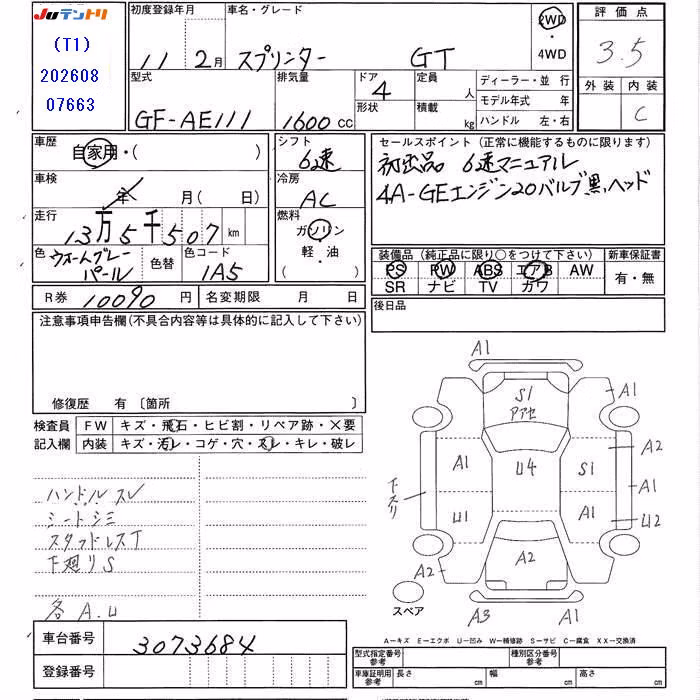 JUテントリ
(T1)
202608
07663
初度登録年月
11 2月
車名・グレード
スプリンター GT
2WD
・
4WD
評価点
3.5
外装 内装
C
型式
GF-AE111
排気量
1600 CC
ドア
4
形状
定員
人
積載
kg
ディーラー・並行
モデル年式 年
ハンドル 左・右
車歴
自家用・( )
車検
年 月( 日)
走行
13万5千507 km
色
ウォームグレー
パール
色替
色コード
1A5
シフト
6速
冷房
AC
燃料
ガソリン
・
軽・油
セールスポイント (正常に機能するものに限ります)
初出品 6速マニュアル
4A-GEエンジン20バルブ黒ヘッド
装備品 (純正品に限り○をつけて下さい)
PS PW ABS エアB AW
SR ナビ TV カワ
新車保証書
有・無
R券 10090 円
名変期限 月 日
後日品
注意事項申告欄(不具合内容等は具体的に記入して下さい)
修復歴 有 〔箇所 〕
検査員
記入欄
FW キズ・飛石・ヒビ割・リペア跡・×要
内装 キズ・汚レ・コゲ・穴・スレ・キレ・破レ
ハンドルスレ
シートシミ
スタッドレスT
下廻りS
各A.U
車台番号 3073684
登録番号
A1
S1
アアセ
A1
A1
U4
S1
A2
A1
下スリ
U1
A1
U2
A2
A2
スペア
A3
A1
A-キズ E-エクボ U-凹み W-補修跡 S-サビ C-腐食 XX-交換済
型式指定番号
参考
種別区分番号
参考
車庫証明用
参考
長さ cm
幅 cm
高さ cm